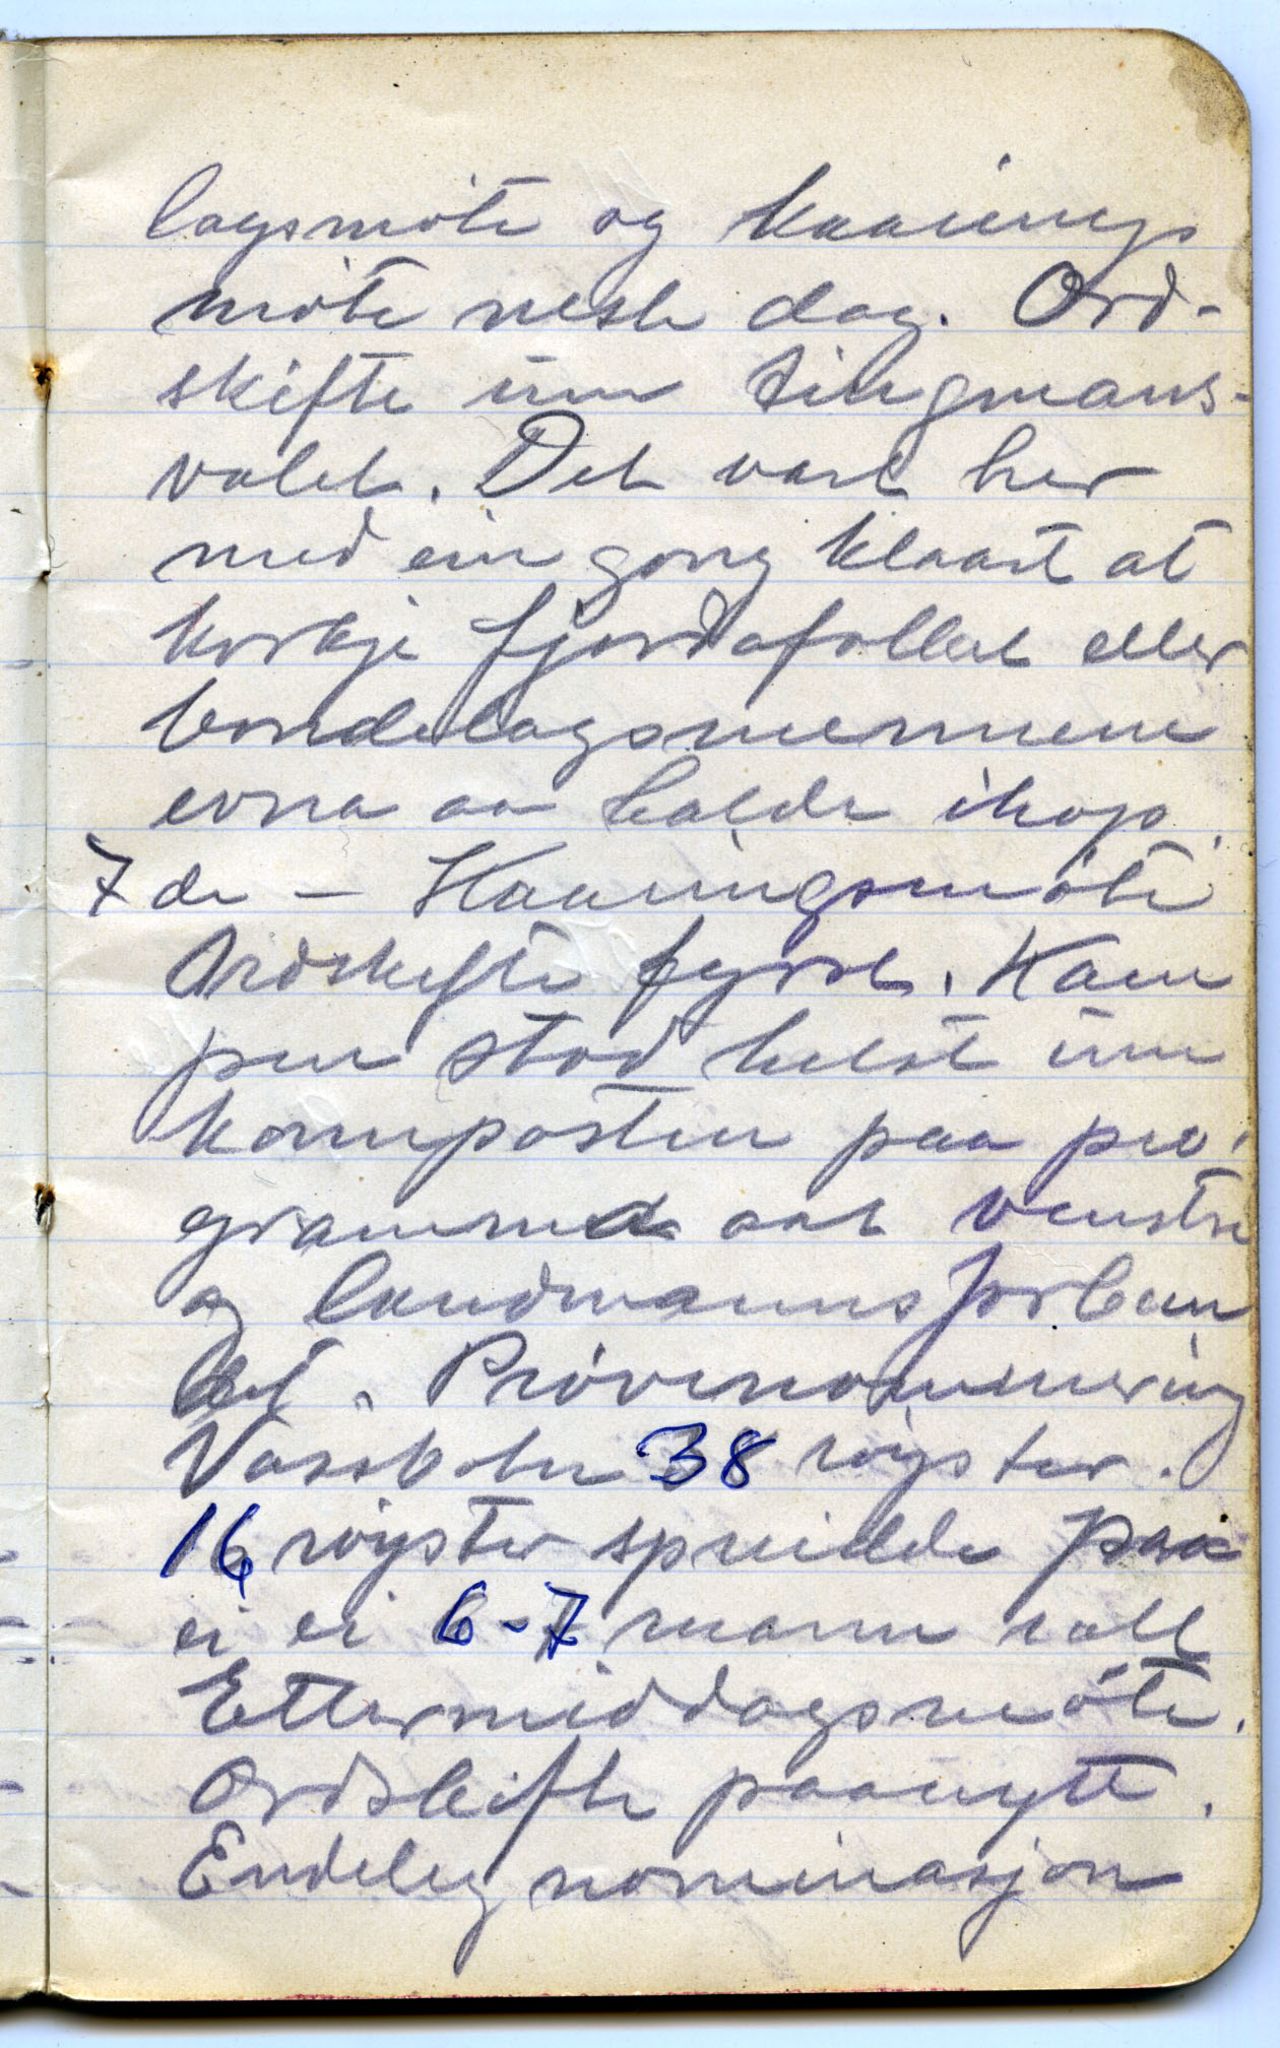 lagsmöte og kaarings
möte neste dag. Ord-
skifte um tingmans-
valet. Det vart her
med ein gong klaart at
korkje fjordafolket eller
bondelagsmennene
evna aa halde ihop.
7de – Kaaringsmöte
Ordskifte fyrst. Kam
pen stod helst um
kornposten paa pro-
gramma aat venstre
og landmannsforbun
det. Prövenominering
Vassbotn 38 röyster.
16 röyster spreidde paa
ei ei 6-7 mann
Ettermiddagsmöte.
Ordskifte paanytt.
Endeleg nominasjon